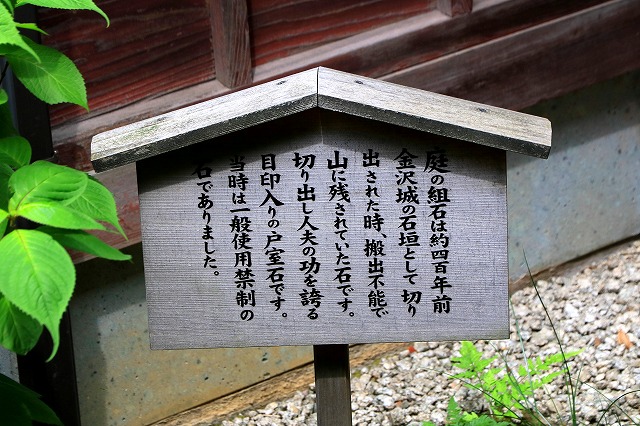 庭の組石は約四百年前
金沢城の石垣として切り
出された時、搬出不能で
山に残されていた石です。
切り出し人夫の功を誇る
目印入りの戸室石です。
当時は一般使用禁制の
石でありました。